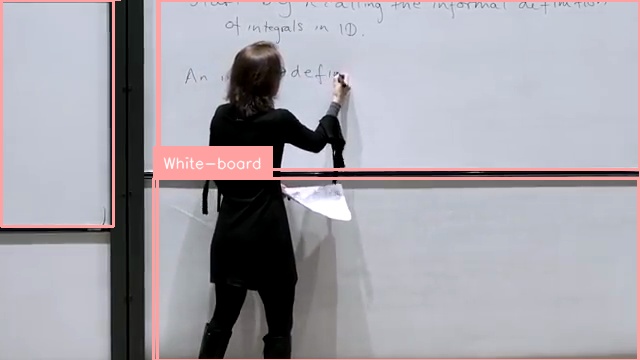 Start by recalling the informal definition
of integrals in 1D.
An defin
White-board